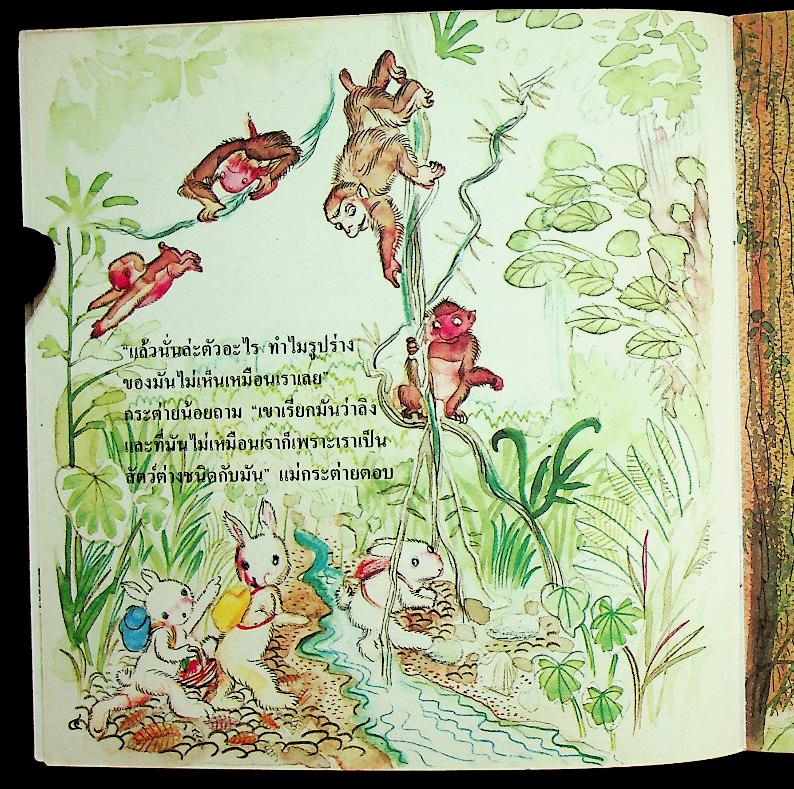 "แล้วนั่นล่ะตัวอะไร ทำไมรูปร่าง
ของมันไม่เห็นเหมือนเราเลย"
กระต่ายน้อยถาม "เขาเรียกมันว่าลิง
และที่มันไม่เหมือนเราก็เพราะเราเป็น
สัตว์ต่างชนิดกับมัน" แม่กระต่ายตอบ